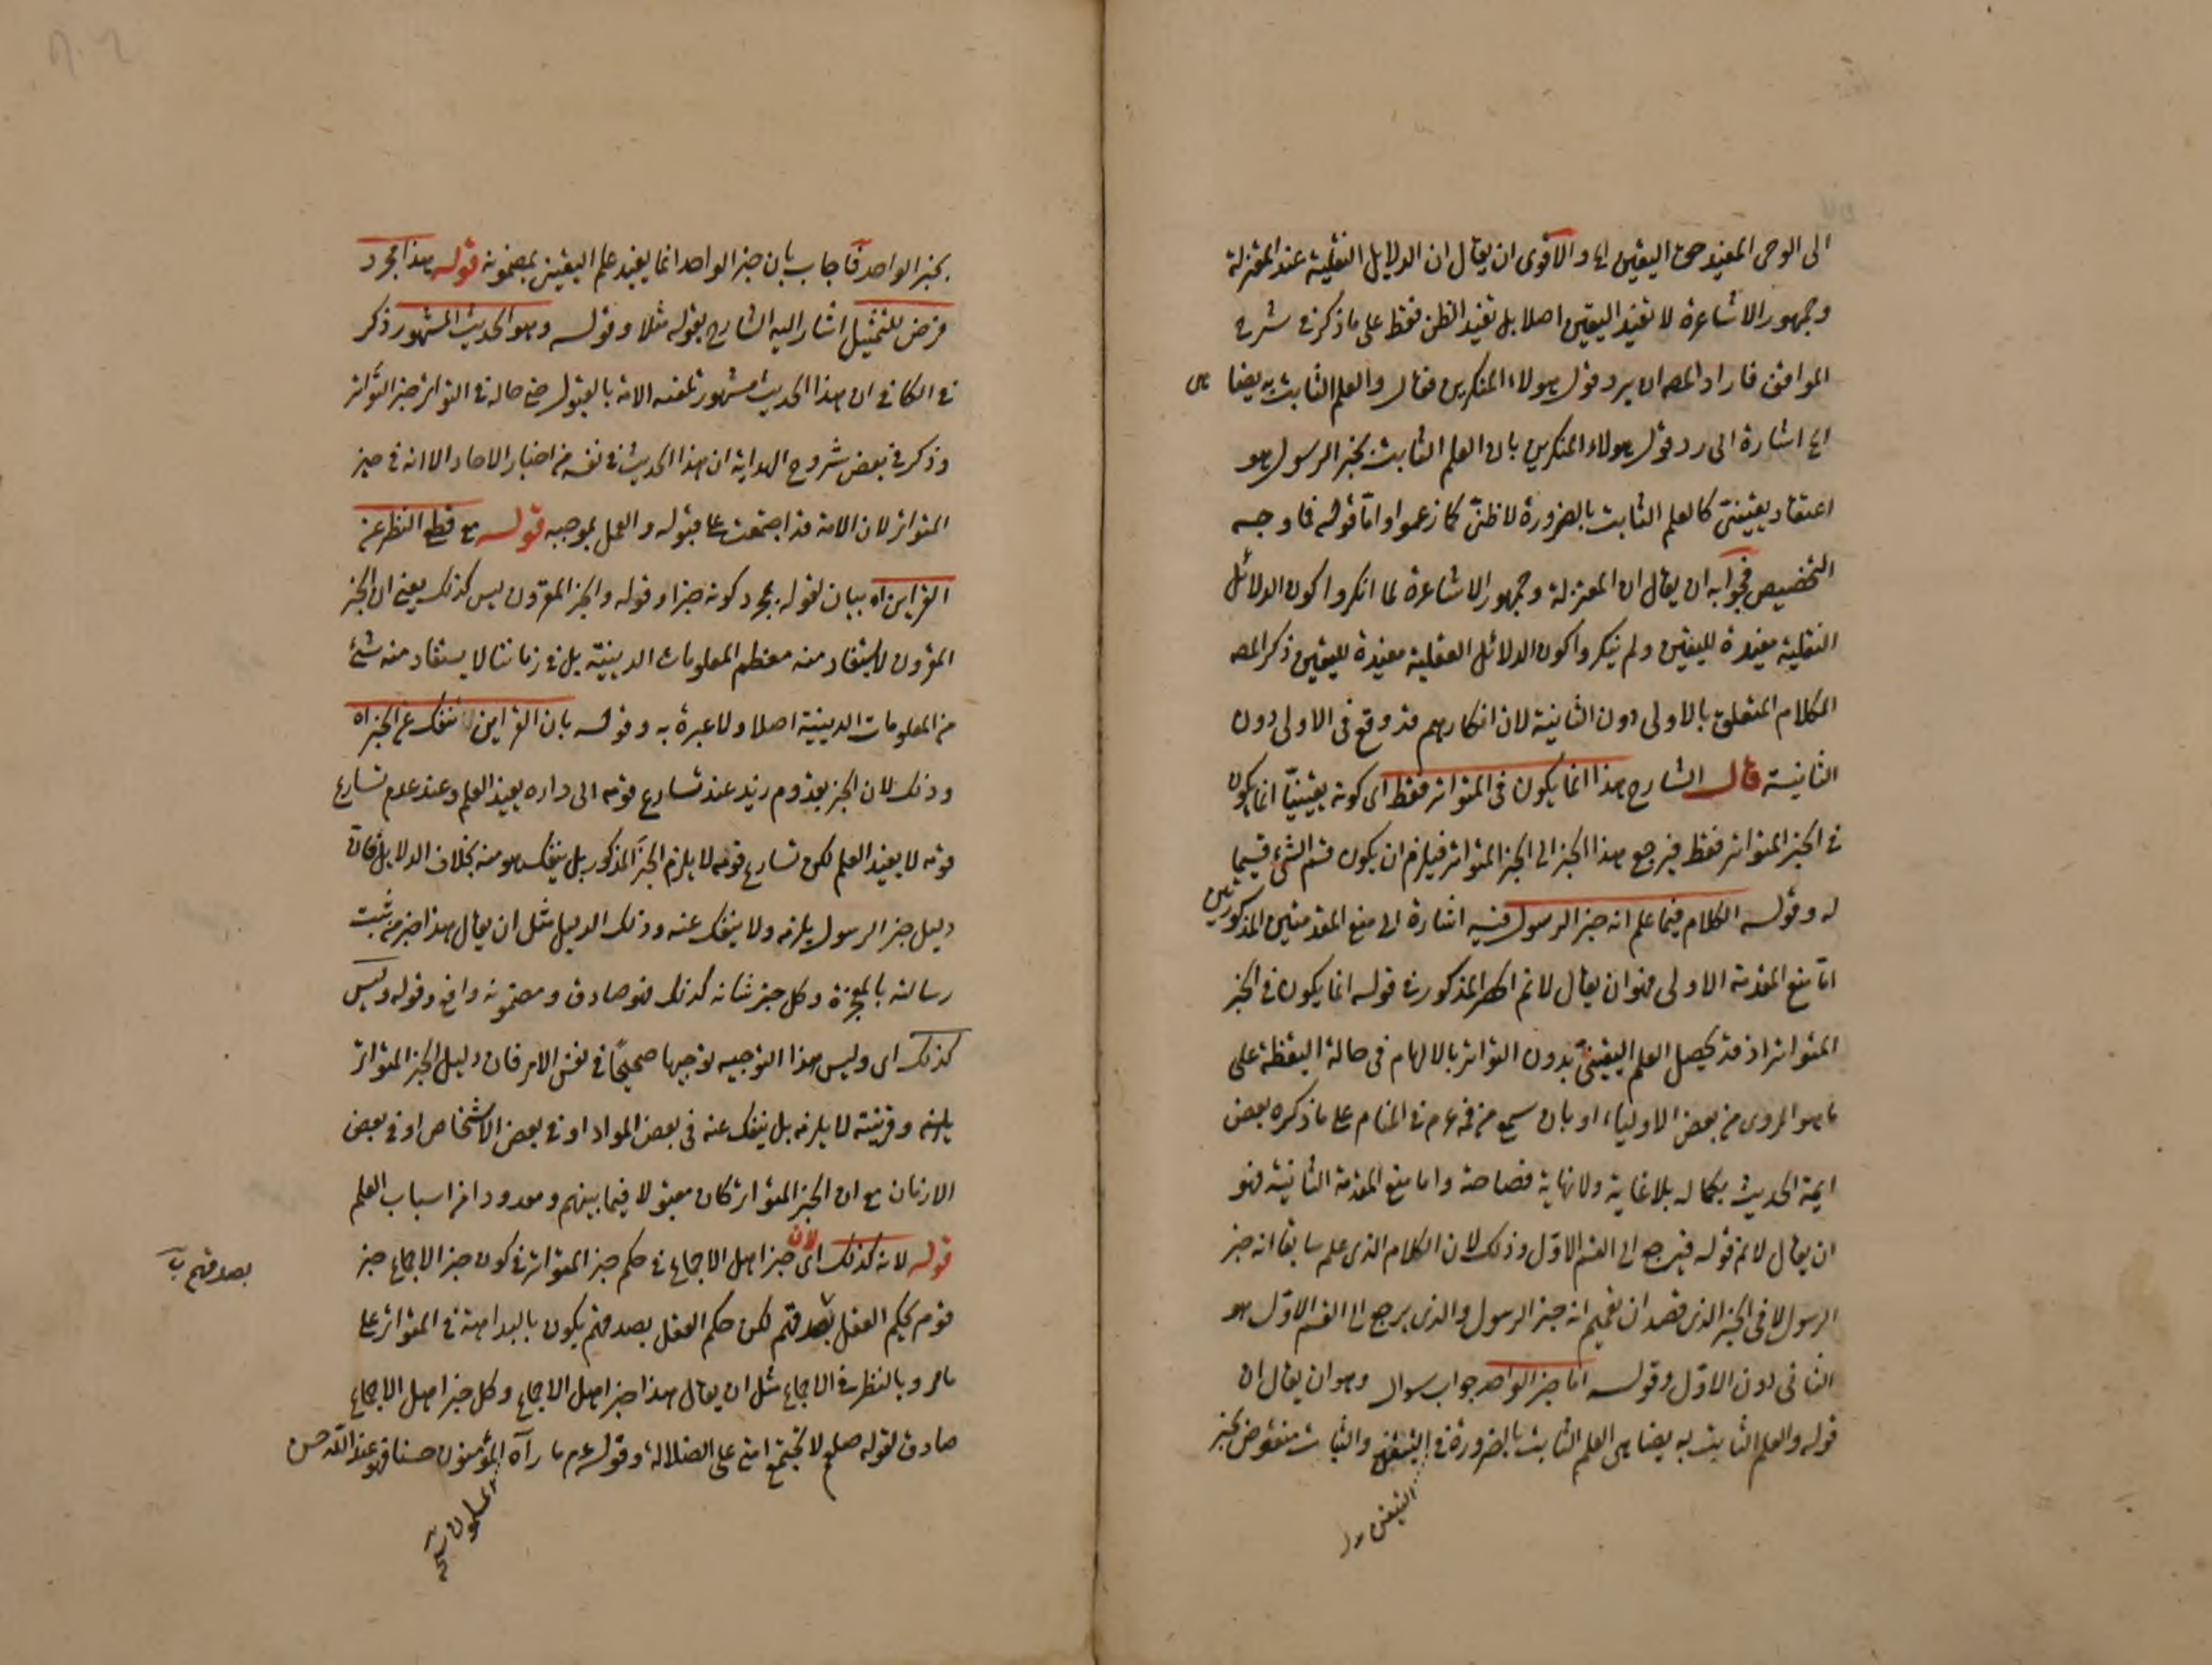 الى الوحى المفيد حق اليقين اه والاقوى ان يقال ان الدلايل النقلية عند المعتزلة
وجمهور الاشاعرة لا تفيد اليقين اصلا بل تفيد الظن فقط على ما ذكر فى شرح
المواقف فاراد المص ان يرد قول هولاء المنكرين فقال والعلم الثابت به يضاهى
اه اشارة الى رد قول هولاء المنكرين بان العلم الثابت بخبر الرسول هو
اعتقاد يقينىّ كالعلم الثابت بالضرورة لا ظنىّ كما زعموا وامّا قوله فما وجه
التخصيص فجوابه ان يقال ان المعتزلة وجمهور الاشاعرة لما انكروا كون الدلائل
النقلية مفيدة لليقين ولم ينكروا كون الدلائل العقلية مفيدة لليقين ذكر المص
الكلام المتعلق بالاولى دون الثانية لان انكارهم قد وقع فى الاولى دون
الثانية قال الشارح هذا انما يكون فى المتواتر فقط اى كونه يقينيّا انما يكون
فى الخبر المتواتر فقط فيرجع هذا الخبر الى الخبر المتواتر فيلزم ان يكون قسم الشئ قسيما
له وقوله الكلام فيما علم انه خبر الرسول فيه اشارة الى منع المقدمتين المذكورتين
امّا منع المقدمة الاولى فهو ان يقال لا نم الحصر المذكور فى قوله انما يكون فى الخبر
المتواتر اذ قد يحصل العلم اليقينىّ بدون التواتر بالالهام فى حالة اليقظة على
ما هو المروى من بعض الاولياء او بان سمع من فمه عم فى المنام على ما ذكره بعض
ايمة الحديث بكماله بلا غاية ولا نهاية فصاحة واما منع المقدمة الثانية فهو
ان يقال لا نم قوله فيرجع الى القسم الاوّل وذلك لان الكلام الذى علم سابقا انه خبر
الرسول لا فى الخبر الذى قصد ان تعميم انه خبر الرسول والذى يرجع الى القسم الاوّل هو
الثانى دون الاوّل وقوله اما خبر الواحد جواب سوال وهو ان يقال ان
قوله والعلم الثابت به يضاهى العلم الثابت بالضرورة فى التيقن والثبات منقوض بخبر
التيقن
بخبر الواحد فاجاب بان خبر الواحد انما يفيد علم اليقين بمضمونه قوله هذا مجرد
فرض للتمثيل اشار اليه الشارح بقوله مثلا وقوله وهو الحديث المشهور ذكر
فى الكافى ان هذا الحديث مشهور تلقته الامة بالقبول حتى صار فى التواتر خبر التواتر
وذكر فى بعض شروح الهداية ان هذا الحديث فى نفسه من اخبار الاحاد الا انه فى حيز
المتواتر لان الامة قد اجتمعت على قبوله والعمل بموجبه قوله مع قطع النظر عن
القراين اه بيان لقوله بمجرد كونه خبرا وقوله والخبر المقرون ليس كذلك يعنى ان الخبر
المقرون لا يستفاد منه معظم المعلومات الدينية بل فى زماننا لا يستفاد منه شئ
من المعلومات الدينية اصلا ولا عبرة به وقوله بان القراين لا تنفك عن الخبر اه
وذلك لان الخبر بقدوم زيد عند تسارع قومه الى داره يفيد العلم وعند عدم تسارع
قومه لا يفيد العلم لكن تسارع قومه لا يلزم الخبر المذكور بل ينفك هو منه بخلاف الدلايل فانّ
دليل خبر الرسول يلزمه ولا ينفك عنه وذلك الدليل مثل ان يقال هذا خبر من ثبت
رسالته بالمعجزة وكل خبر شانه كذلك فهو صادق ومضمونه واقع وقوله وليس
كذلك اى وليس هذا التوجيه توجيها صحيحا فى نفس الامر فان دليل الخبر المتواتر
يلزمه وقرينته لا يلزمه بل ينفك عنه فى بعض المواد او فى بعض الاشخاص او فى بعض
الازمان مع ان الخبر المتواتر كان مقبولا فيما بينهم ومعدودا من اسباب العلم
قوله لانه كذلك اى لان خبر اهل الاجماع فى حكم خبر المتواتر فى كون خبر الاجماع خبر
قوم يحكم العقل بصدقهم لكن حكم العقل بصدقهم يكون بالبداهة فى المتواتر على
بصدقهم
ما مر وبالنظر فى الاجماع مثل ان يقال هذا خبر اهل الاجماع وكل خبر اهل الاجماع
صادق لقوله صلعم لا تجتمع امتى على الضلالة وقوله عم ما رآه المؤمنون حسنا فهو عند الله حسن
المسلمون